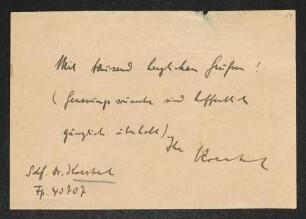 Mit tausend herzlichen Grüßen!
(Genesungswünsche sind hoffentlich
gänzlich überholt) Ihr
Sdf. Dr.
Fp. 40707